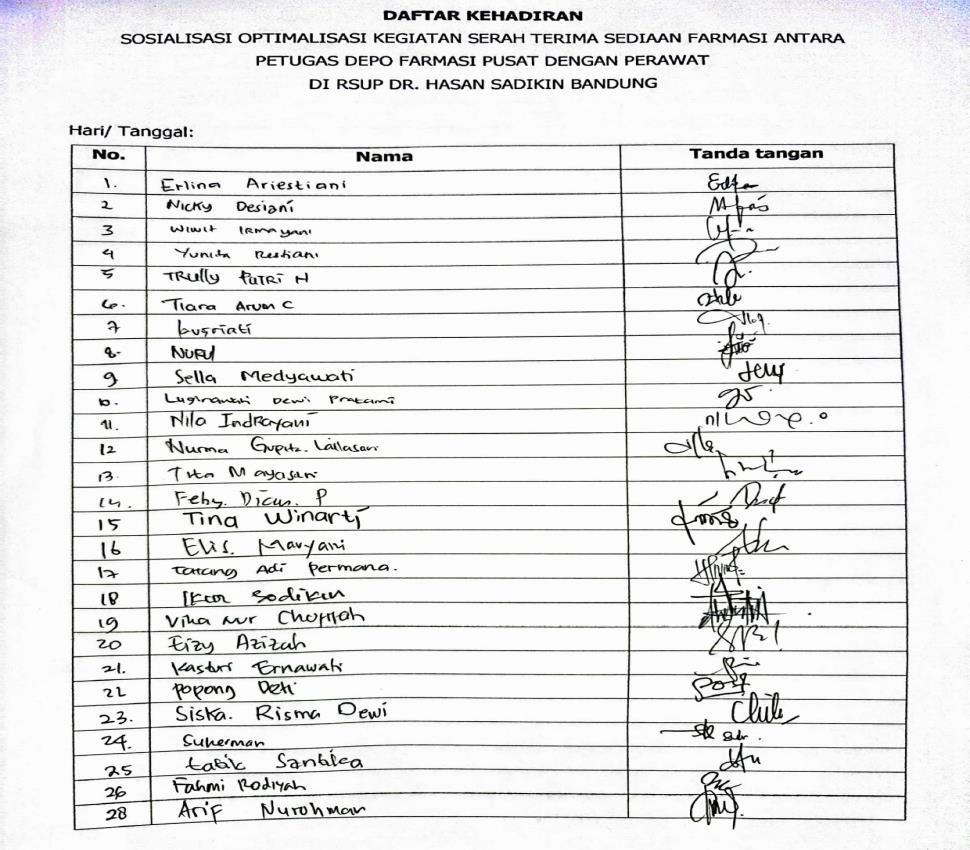 DAFTAR KEHADIRAN
SOSIALISASI OPTIMALISASI KEGIATAN SERAH TERIMA SEDIAAN FARMASI ANTARA
PETUGAS DEPO FARMASI PUSAT DENGAN PERAWAT
DI RSUP DR. HASAN SADIKIN BANDUNG
Hari/ Tanggal:
No. Nama Tanda tangan
1. Erlina Ariestiani
2 Nicky Desiani
3 Wiwit Irmayani
4 Yunita Restiani
5 TRully PUTRI H
6. Tiara Arum C
7
8. NURUl
9 Sella Medyawati
10. Dewi Pratami
11. Nila Indrayani
12 Nurma Lailasari
13. Tita Mayasari
14. Feby. P
15 Tina Winarti
16 Elis. Maryani
17 Tatang Adi Permana.
18 Sodikin
19 Vika Nur
20 Eizy Azizah
21. Kasturi Ernawati
22 Popong Deti
23. Siska. Risma Dewi
24. Suherman
25 Tatik
26 Fahmi Rodiyah
28 Arif Nurohman